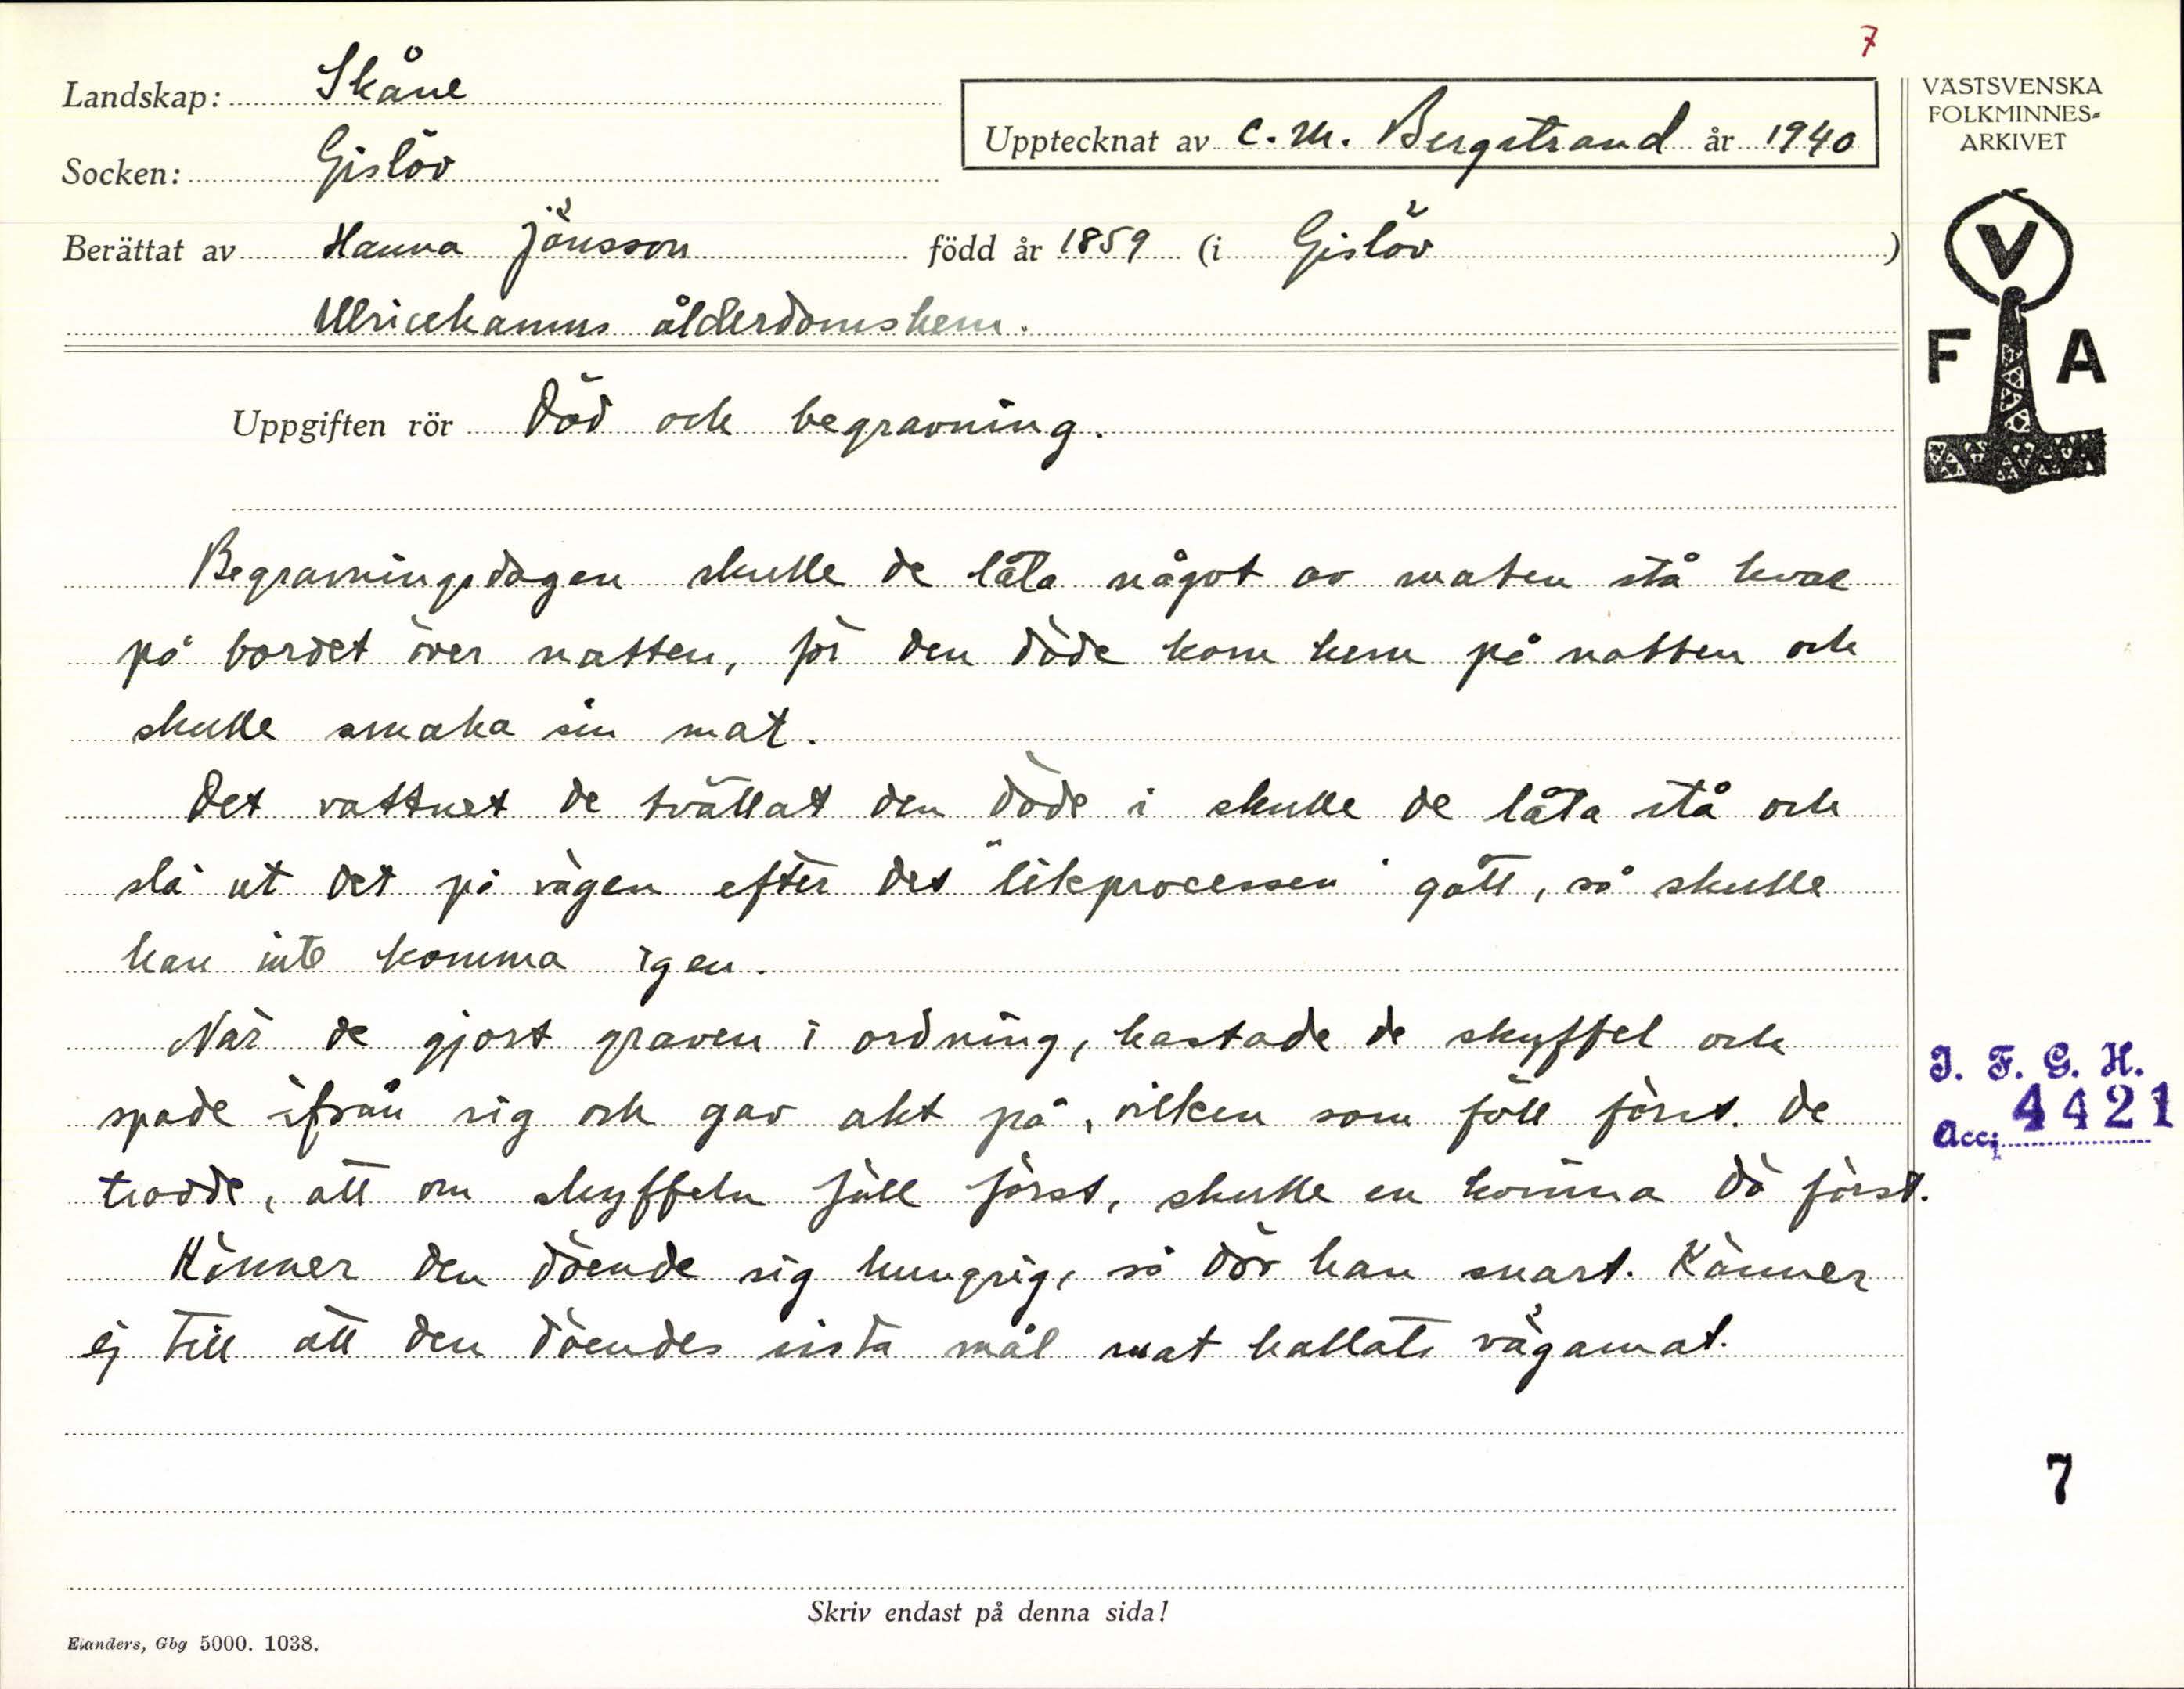 7
Landskap: Skåne
Upptecknat av C. M. Bergstrand år 1940
Socken: Gislöv
Berättat av Hanna Jönsson född år 1859 (i Gislöv )
Ulricehamns ålderdomshem.
VÄSTSVENSKA
FOLKMINNES-
ARKIVET
V
F A
Uppgiften rör Död och begravning.
Begravningsdagen skulle de låta något av maten stå kvar
på bordet över natten, för den döde kom hem på natten och
skulle smaka sin mat.
Det vattnet de tvättat den döde i skulle de låta stå och
slå ut det på vägen efter det "likprocessen" gått, så skulle
han inte komma igen.
När de gjort graven i ordning, kastade de skyffel och
spade ifrån sig och gav akt på, vilken som föll först. De
trodde, att om skyffeln föll först, skulle en kvinna dö först.
Känner den döende sig hungrig, så dör han snart. Känner
ej till att den döendes sista mål mat kallats vägamat.
I. F. G. H.
Acc; 4421
7
Skriv endast på denna sida!
Elanders, Gbg 5000. 1038.